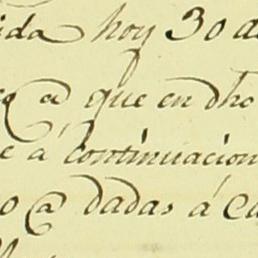 ida hoy 30 d
@ que en dho
e á continuacion
o @ dadas á Ca